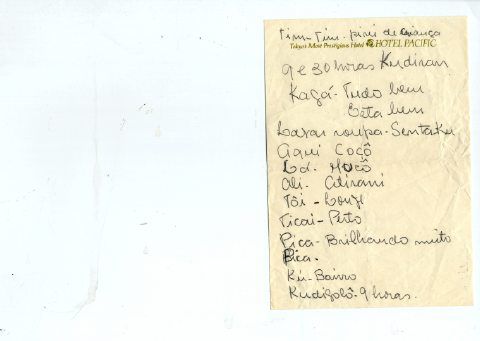 Tim-Tim. pipi de criança
Tokyo's Most Prestigious Hotel HOTEL PACIFIC
9 e 30 horas Kudiran
Kagá-Tudo bem
Esta bem
Lavar roupa-Sentaku
Aqui Cocô
Lá. Mocô
Ali. Atirani
Tôi - Longe
Ticai-Perto
Pica-Brilhando muito
Pica.
Ku-Bairro
Kudigolô-9 horas.